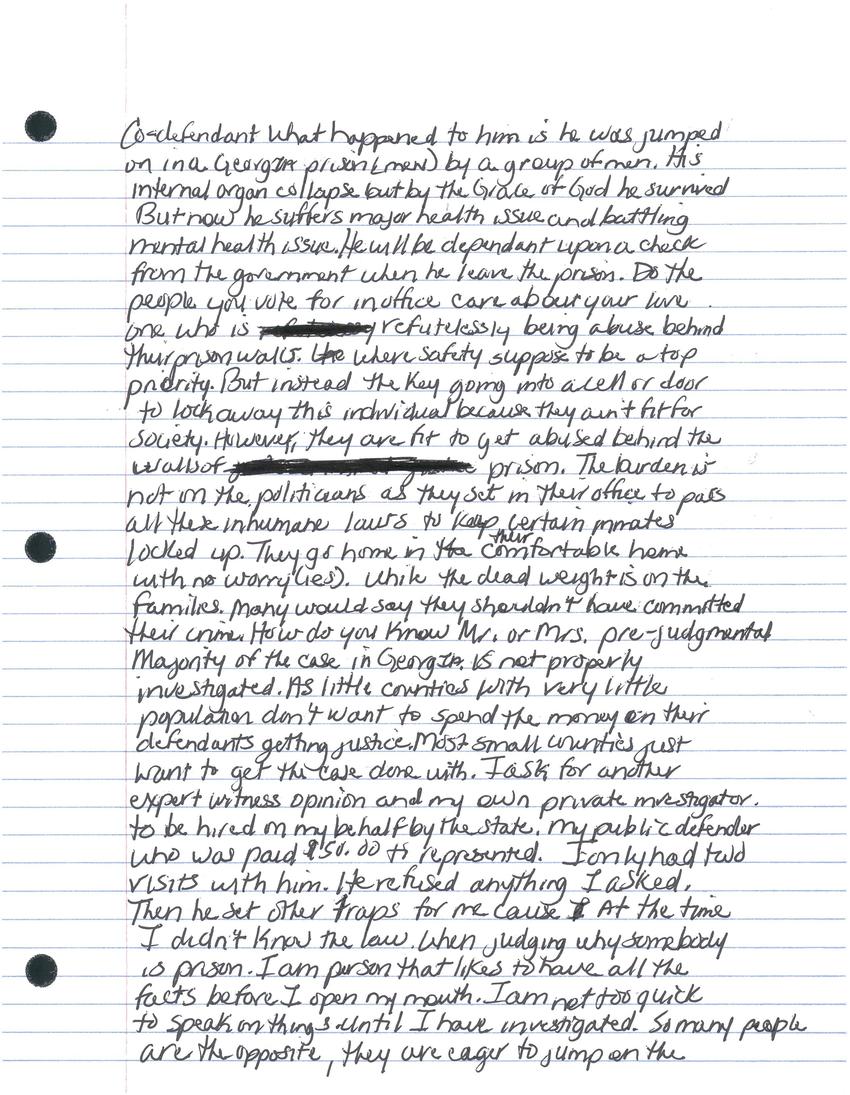 Co-defendant What happened to him is he was jumped
on in a Georgia prison (men) by a group of men. His
internal organ collapse but by the Grace of God he survived
But now he suffers major health issue and battling
mental health issue. He will be dependant upon a check
from the government when he leave the prison. Do the
people you vote for in office care about your love
one who is refutelessly being abuse behind
their prison walls. where safety suppose to be a top
priority. But instead the key going into a cell or door
to lock away this individual because they ain't fit for
society. However, they are fit to get abused behind the
walls of prison. The burden is
not on the politicians as they set in their office to pass
all these inhumane laws to keep certain inmates
locked up. They go home in their comfortable home
with no worry(ies). While the dead weight is on the
families. Many would say they shouldn't have committed
their crime. How do you know Mr. or Mrs. pre-judgmental
Majority of the case in Georgia is not properly
investigated. As little counties with very little
population don't want to spend the money on their
defendants getting justice. Most small counties just
want to get the case done with. I ask for another
expert witness opinion and my own private investigator.
to be hired on my behalf by the state. My public defender
who was paid $50.00 to represented. I only had two
visits with him. He refused anything I asked.
Then he set other traps for me cause At the time
I didn't know the law. When judging why somebody
is prison. I am person that likes to have all the
facts before I open my mouth. I am not too quick
to speak on things until I have investigated. So many people
are the opposite, they are eager to jump on the